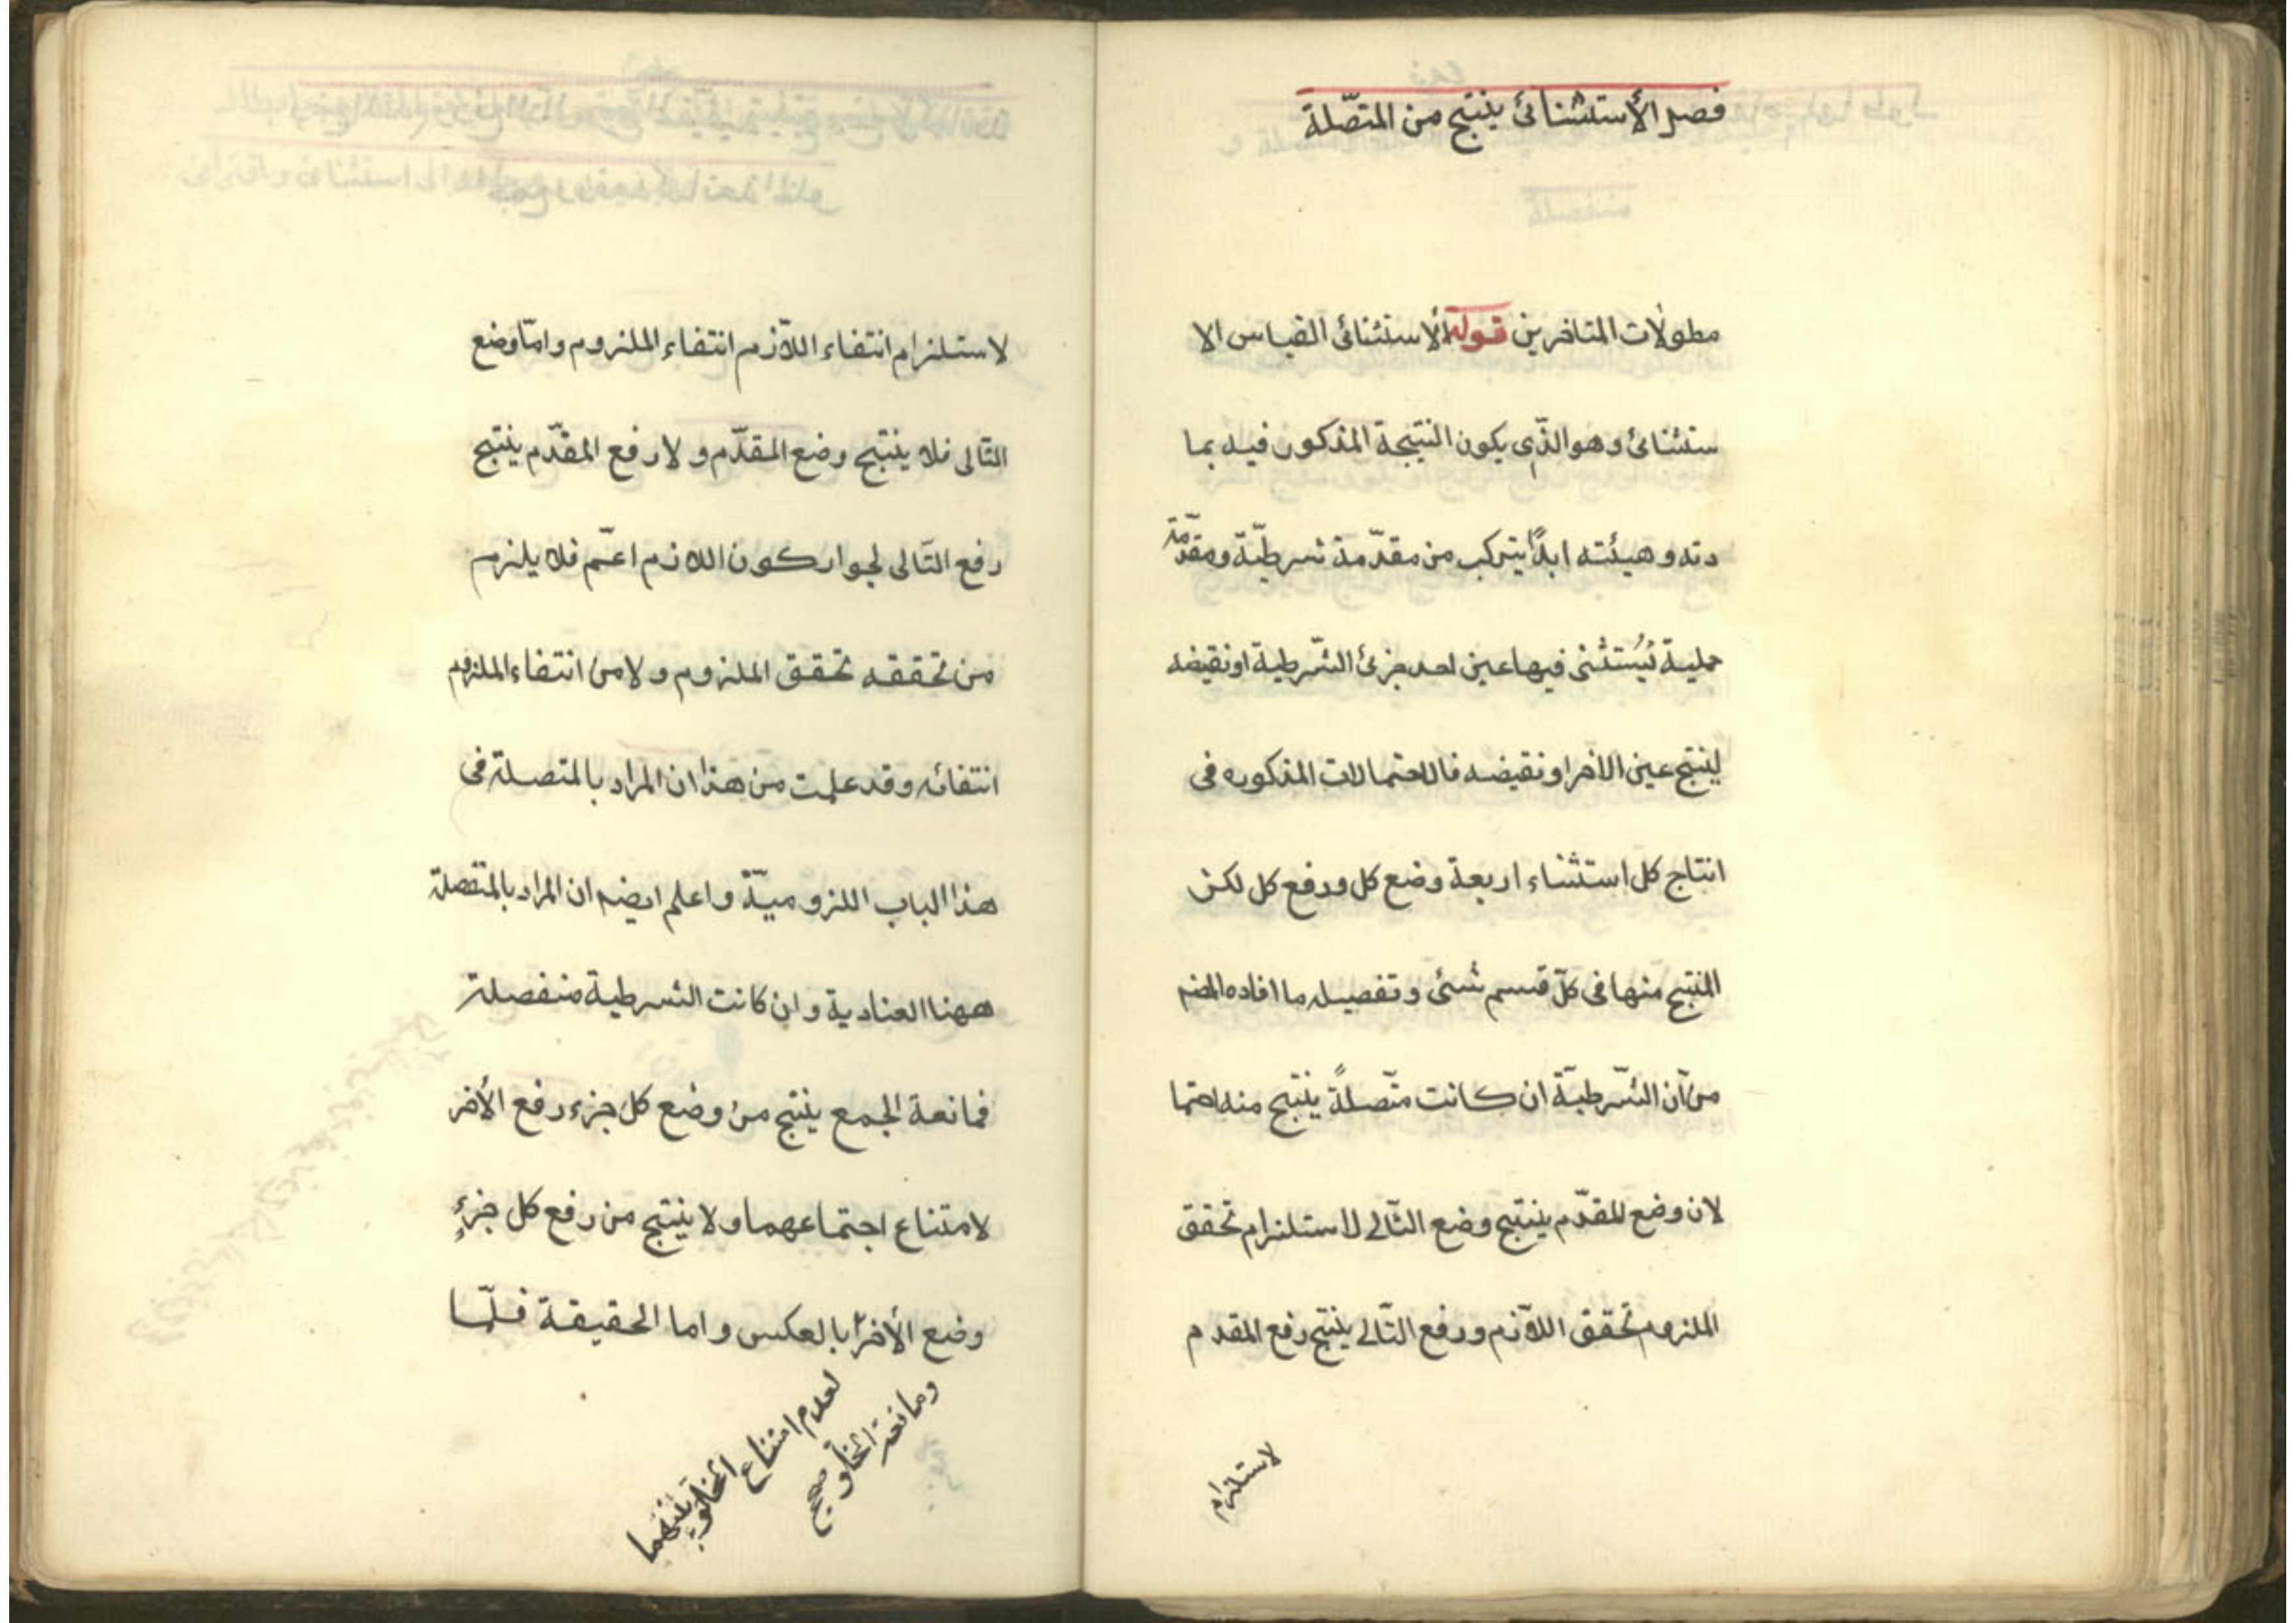 فصل الأستثنائى ينتج من المتّصلة
مطولات المتاخرين قوله الاستثنائى القياس الا
ستثنائى وهو الذّى يكون النتيجة المذكور فيه بما
دته وهيئته ابدًا يتركب من مقدّمة شرطيّة ومقدّمة
حملية يُستثنى فيها عين احد جزئ الشّرطية او نقيضه
لينتج عين الاخر او نقيضه فالاحتمالات المذكوره فى
انتاج كل استثناء اربعة وضع كل ورفع كل لكن
المنتج منها فى كلّ قسم شئى وتفصيله ما افاده المضم
من آن الشّرطيّة ان كانت متّصلةً ينتج منه احتما
لان وضع المقدّم ينتج وضع التّالى لاستلزام تحقق
الملزوم تحقق اللآزم ورفع التّالى ينتج رفع المقدم
لاستلزام
لاستلزام انتفاء اللآزم انتفاء الملزوم وامّا وضع
التّالى فلا ينتج وضع المقدّم ولا رفع المقدّم ينتج
رفع التّالى لجواز كون اللازم اعمّ فلا يلزم
من تحققه تحقق الملزوم ولا من انتفاء الملزوم
انتفائه وقد علمت من هذا ان المراد بالمتصلة فى
هذا الباب اللزوميّة واعلم ايضم ان المراد بالمتفصلة
ههنا العنادية وان كانت الشرطية منفصلة
فمانعة الجمع ينتج من وضع كل جزء رفع الأخر
لامتناع اجتماعهما ولا ينتج من رفع كل جزءٍ
وضع الأخر بالعكس واما الحقيقة فلّما
لعدم امتناع الخلو بينهما
ومانعة الخلو صح